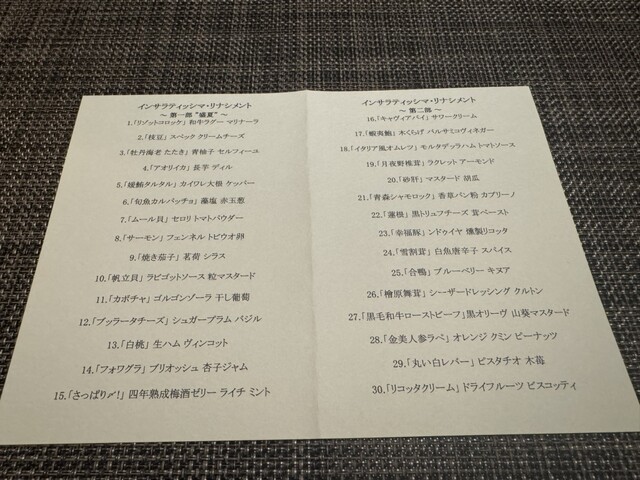 インサラティッシマ・リナシメント
～ 第一部 "盛夏" ～
1.「リゾットコロッケ」 和牛ラグー マリナーラ
2.「枝豆」 スペック クリームチーズ
3.「牡丹海老 たたき」 青柚子 セルフィーユ
4.「アオリイカ」 長芋 ディル
5.「媛鮪タルタル」 カイワレ大根 ケッパー
6.「旬魚カルパッチョ」 藻塩 赤玉葱
7.「ムール貝」 セロリ トマトパウダー
8.「サーモン」 フェンネル トビウオ卵
9.「焼き茄子」 茗荷 シラス
10.「帆立貝」 ラビゴットソース 粒マスタード
11.「カボチャ」 ゴルゴンゾーラ 干し葡萄
12.「ブッラータチーズ」 シュガープラム バジル
13.「白桃」 生ハム ヴィンコット
14.「フォワグラ」 ブリオッシュ 杏子ジャム
15.「さっぱり〆!」 四年熟成梅酒ゼリー ライチ ミント
インサラティッシマ・リナシメント
～ 第二部 ～
16.「キャヴィアパイ」 サワークリーム
17.「蝦夷鮑」 木くらげ バルサミコヴィネガー
18.「イタリア風オムレツ」 モルタデッラハム トマトソース
19.「月夜野椎茸」 ラクレット アーモンド
20.「砂肝」 マスタード 胡瓜
21.「青森シャモロック」 香草パン粉 カプリーノ
22.「蓮根」 黒トリュフチーズ 茸ペースト
23.「幸福豚」 ンドゥイヤ 燻製リコッタ
24.「雪割茸」 白魚唐辛子 スパイス
25.「合鴨」 ブルーベリー キヌア
26.「檜原舞茸」 シーザードレッシング クルトン
27.「黒毛和牛ローストビーフ」 黒オリーヴ 山葵マスタード
28.「金美人参ラペ」 オレンジ クミン ピーナッツ
29.「丸い白レバー」 ピスタチオ 木苺
30.「リコッタクリーム」 ドライフルーツ ビスコッティ